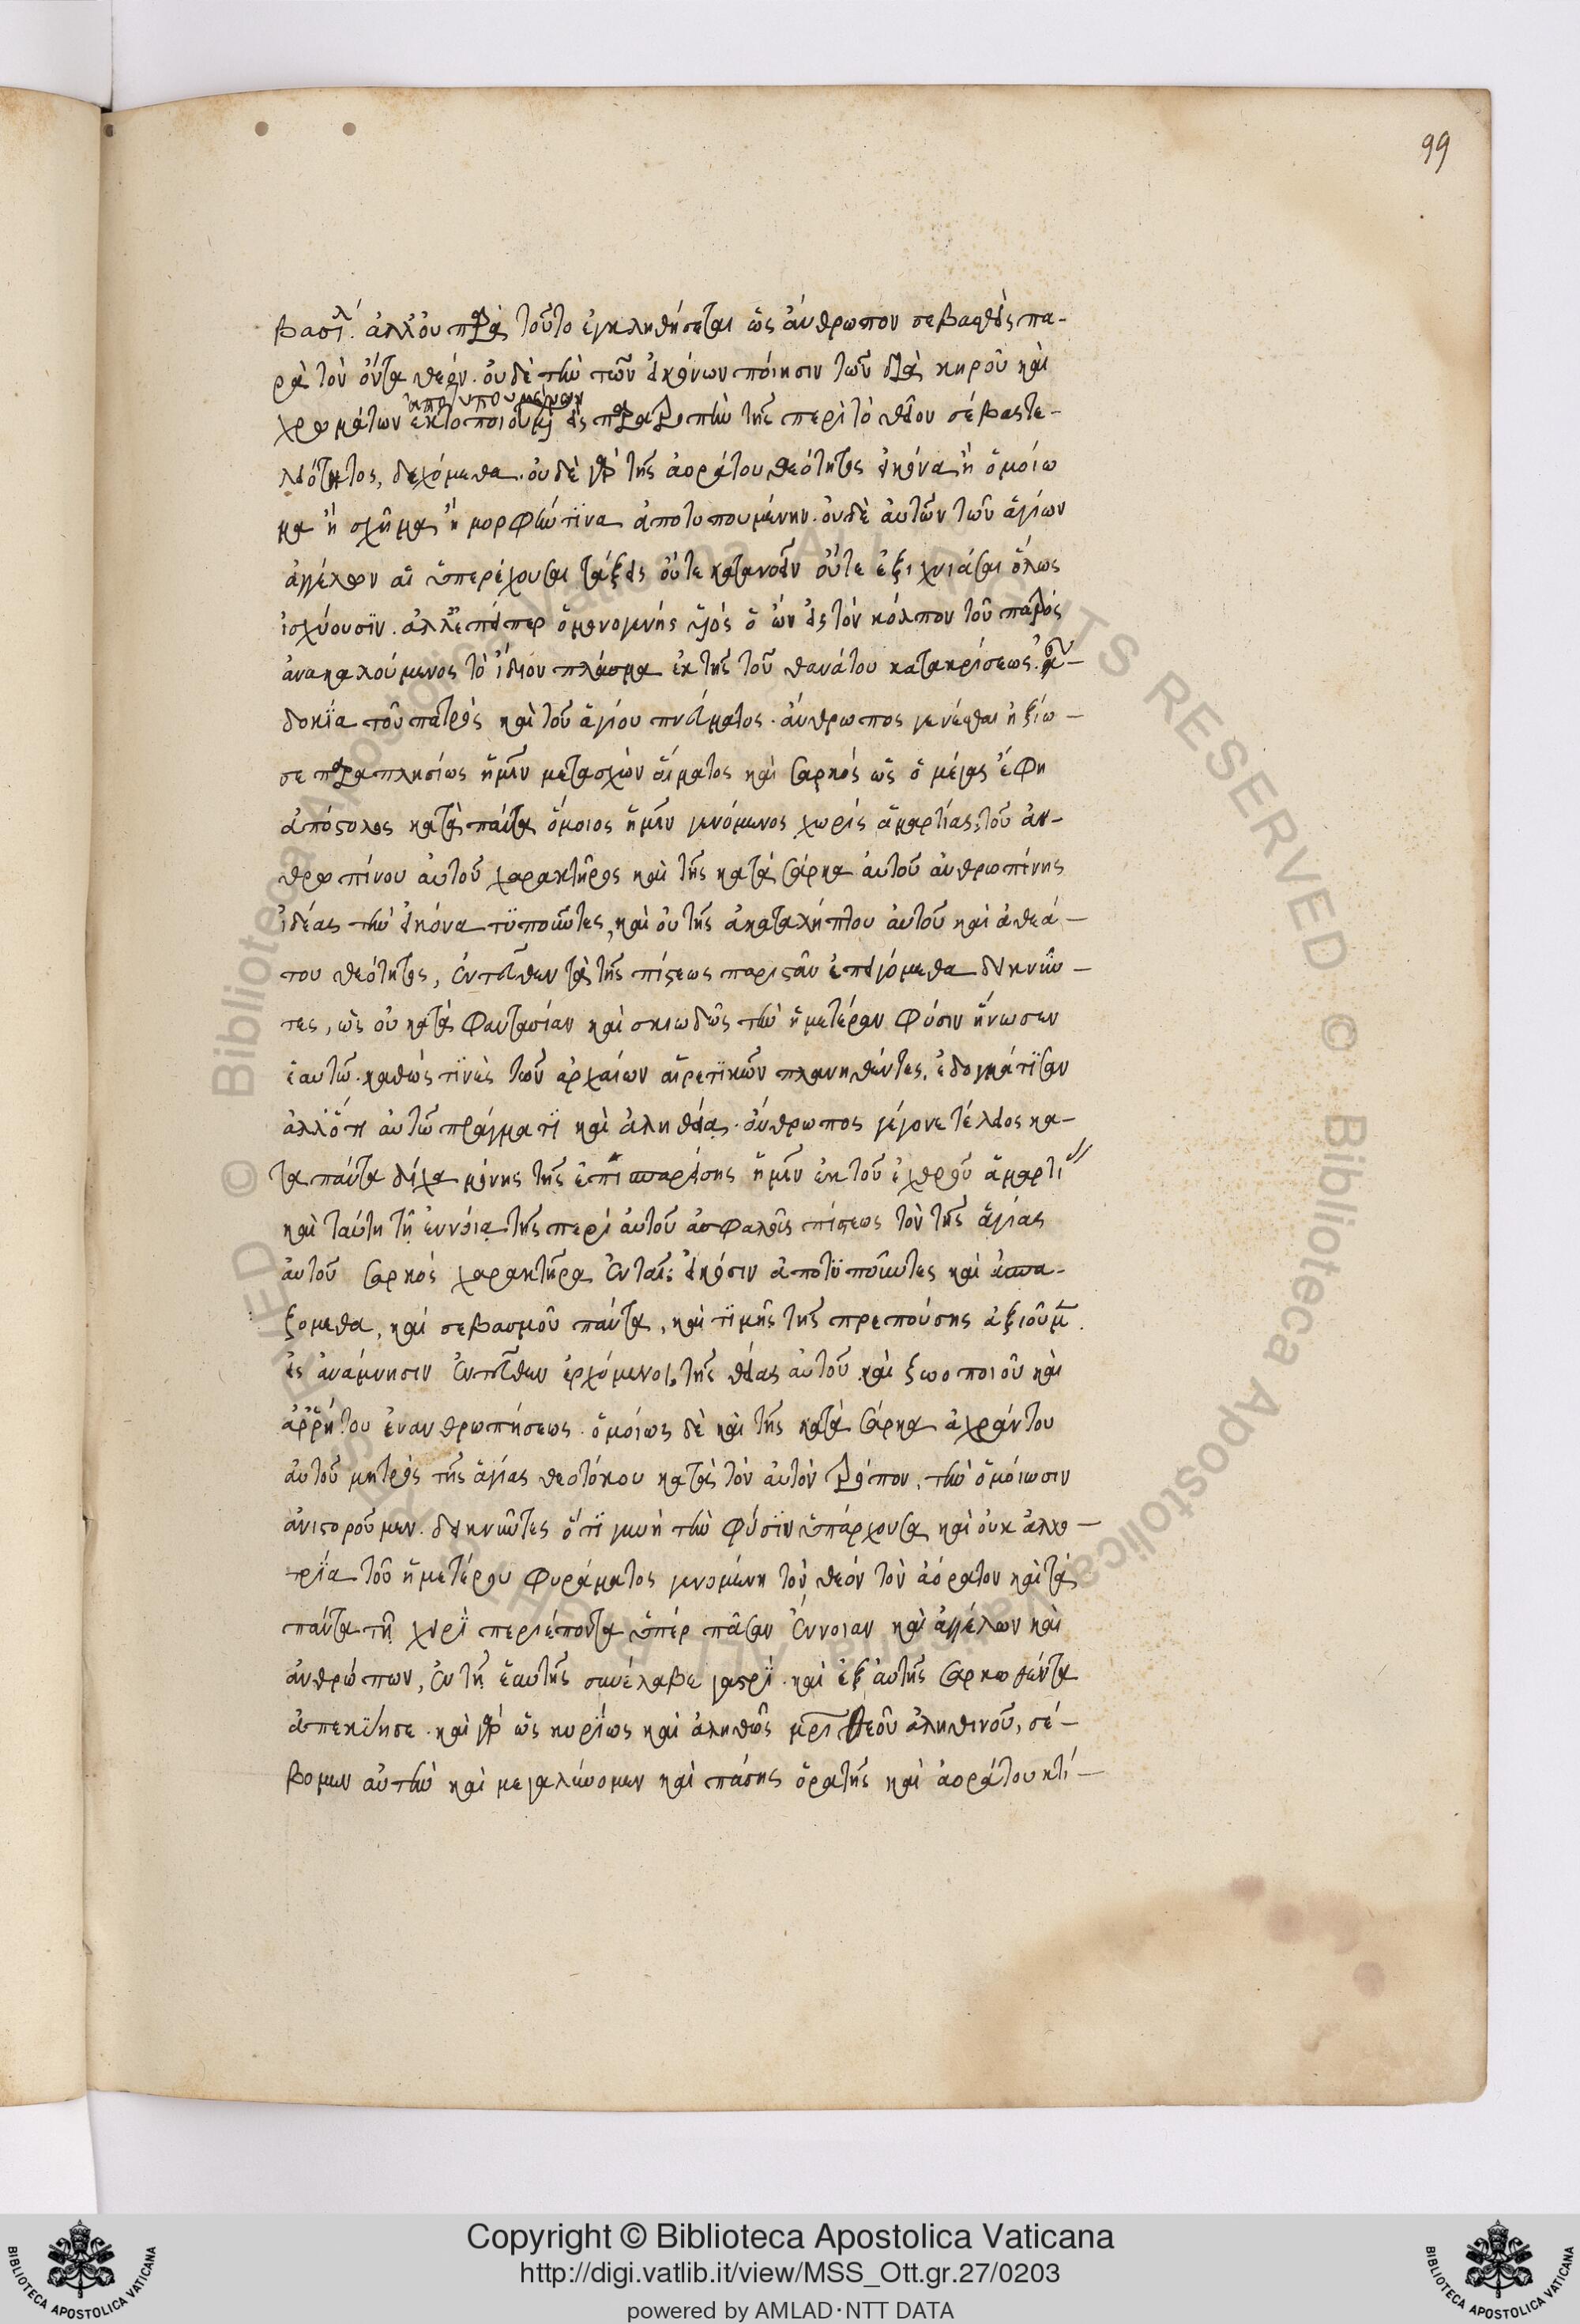 99
βασιλ. ἀλλ' οὐ παρὰ τοῦτο ἐγκληθήσεται ὡς ἄνθρωπον σεβασθεὶς πα-
ρὰ τὸν ὄντα θεόν. οὐδὲ τὴν τῶν εἰκόνων ποίησιν τῶν διὰ κηροῦ καὶ
ἀποτυπουμένων
χρωμάτων εἰς παρατροπὴν τῆς περὶ τὸ θεῖον σέβας τε-
λειότητος, δεχόμεθα. οὐδὲ γὰρ τῆς ἀοράτου θεότητος εἰκόνα ἢ ὁμοίω
μα ἢ σχῆμα ἢ μορφὴν τϊνα ἀποτυπουμένην. οὐδὲ αὐτῶν τῶν ἁγίων
ἀγγέλων αἱ ὑπερέχουσαι τάξεις οὔτε κατανοεῖν οὔτε ἐξιχνιάσαι ὅλως
ἰσχύουσϊν. ἀλλ' ἐπείπερ ὁ μονογενὴς υἱὸς ὁ ὢν εἰς τὸν κόλπον τοῦ πατρός
ἀνακαλούμενος τὸ ἴδιον πλάσμα ἐκ τῆς τοῦ θανάτου κατακρίσεως. εὐ-
δοκΐα τοῦ πατρὸς καὶ τοῦ ἁγίου πνεύματος. ἄνθρωπος γενέσθαι ἠξίω-
σε παραπλησίως ἡμῖν μετασχὼν αἵματος καὶ σαρκός ὡς ὁ μέγας ἔφη
ἀπόστολος κατὰ πάντα ὅμοιος ἡμῖν γενόμενος χωρὶς ἁμαρτίας, τοῦ ἀν-
θρωπίνου αὐτοῦ χαρακτῆρος καὶ τῆς κατὰ σάρκα αὐτοῦ ἀνθρωπίνης
ἰδέας τὴν εἰκόνα τϋποῦντες, καὶ οὐ τῆς ἀκαταλήπτου αὐτοῦ καὶ ἀθεά-
του θεότητος, ἐντεῦθεν τὰ τῆς πίστεως παριστᾶν ἐπειγόμεθα δεικνῦν-
τες, ὡς οὐ κατὰ φαντασίαν καὶ σκιωδῶς τὴν ἡμετέραν φύσιν ἥνωσεν
ἑαυτῶ. καθώς τϊνὲς τῶν ἀρχαίων αἱρετϊκῶν πλανηθέντες, ἐδογμάτϊσαν
ἀλλ' ὅτι αὐτῶ πράγματϊ καὶ ἀληθείᾳ. ἄνθρωπος γέγονε τέλειος κα-
τα πάντα δίχα μόνης τῆς ἐπισπαρείσης ἡμῖν ἐκ τοῦ ἐχθροῦ ἁμαρτι
καὶ ταύτη τῇ ἐννοίᾳ τῆς περὶ αὐτοῦ ἀσφαλοῦς πίστεως τὸν τῆς ἁγίας
αὐτοῦ σαρκός χαρακτῆρα ἐν ταῖς εἰκόσιν ἀποτϋποῦντες καὶ ἀσπα-
ζομεθα, καὶ σεβασμοῦ παντα, καὶ τϊμῆς τῆς πρεπούσης ἀξιοῦμ.
εἰς ἀνάμνησιν ἐντεῦθεν ἐρχόμενοι, τῆς θείας αὐτοῦ καὶ ζωοποιοῦ καὶ
ἀρρήτου ἐνανθρωπήσεως. ὁμοίως δὲ καὶ τῆς κατὰ σάρκα ἀχράντου
αὐτοῦ μητρὸς τῆς ἁγίας θεοτόκου κατὰ τὸν αὐτὸν τρόπον. τὴν ὁμοίωσιν
ἀνιστοροῦμεν. δεικνῦντες ὅτϊ γυνὴ τὴν φύσϊν ὑπάρχουσα καὶ οὐκ ἀλλο-
τρΐα τοῦ ἡμετέρου φυράματος γενομένη τὸν θεόν τὸν ἀόρατον καὶ τὰ
πάντα τῇ χειρΐ περιέποντα ὑπὲρ πᾶσαν ἔννοιαν καὶ ἀγγέλων καὶ
ἀνθρώπων, ἐν τῇ ἑαυτῆς συνέλαβε γαστρΐ. καὶ ἐξ αὐτῆς σαρκωθέντα
ἀπεκΰησε. καὶ γὰρ ὡς κυρΐως καὶ ἀληθῶς μρι θεοῦ ἀληθινοῦ, σέ-
βομεν αὐτὴν καὶ μεγαλύνομεν καὶ πάσης ὁρατῆς καὶ ἀοράτου κτί-
Copyright © Biblioteca Apostolica Vaticana
http://digi.vatlib.it/view/MSS_Ott.gr.27/0203
powered by AMLAD·NTT DATA
BIBLIOTECA APOSTOLICA VATICANA
BIBLIOTECA APOSTOLICA VATICANA